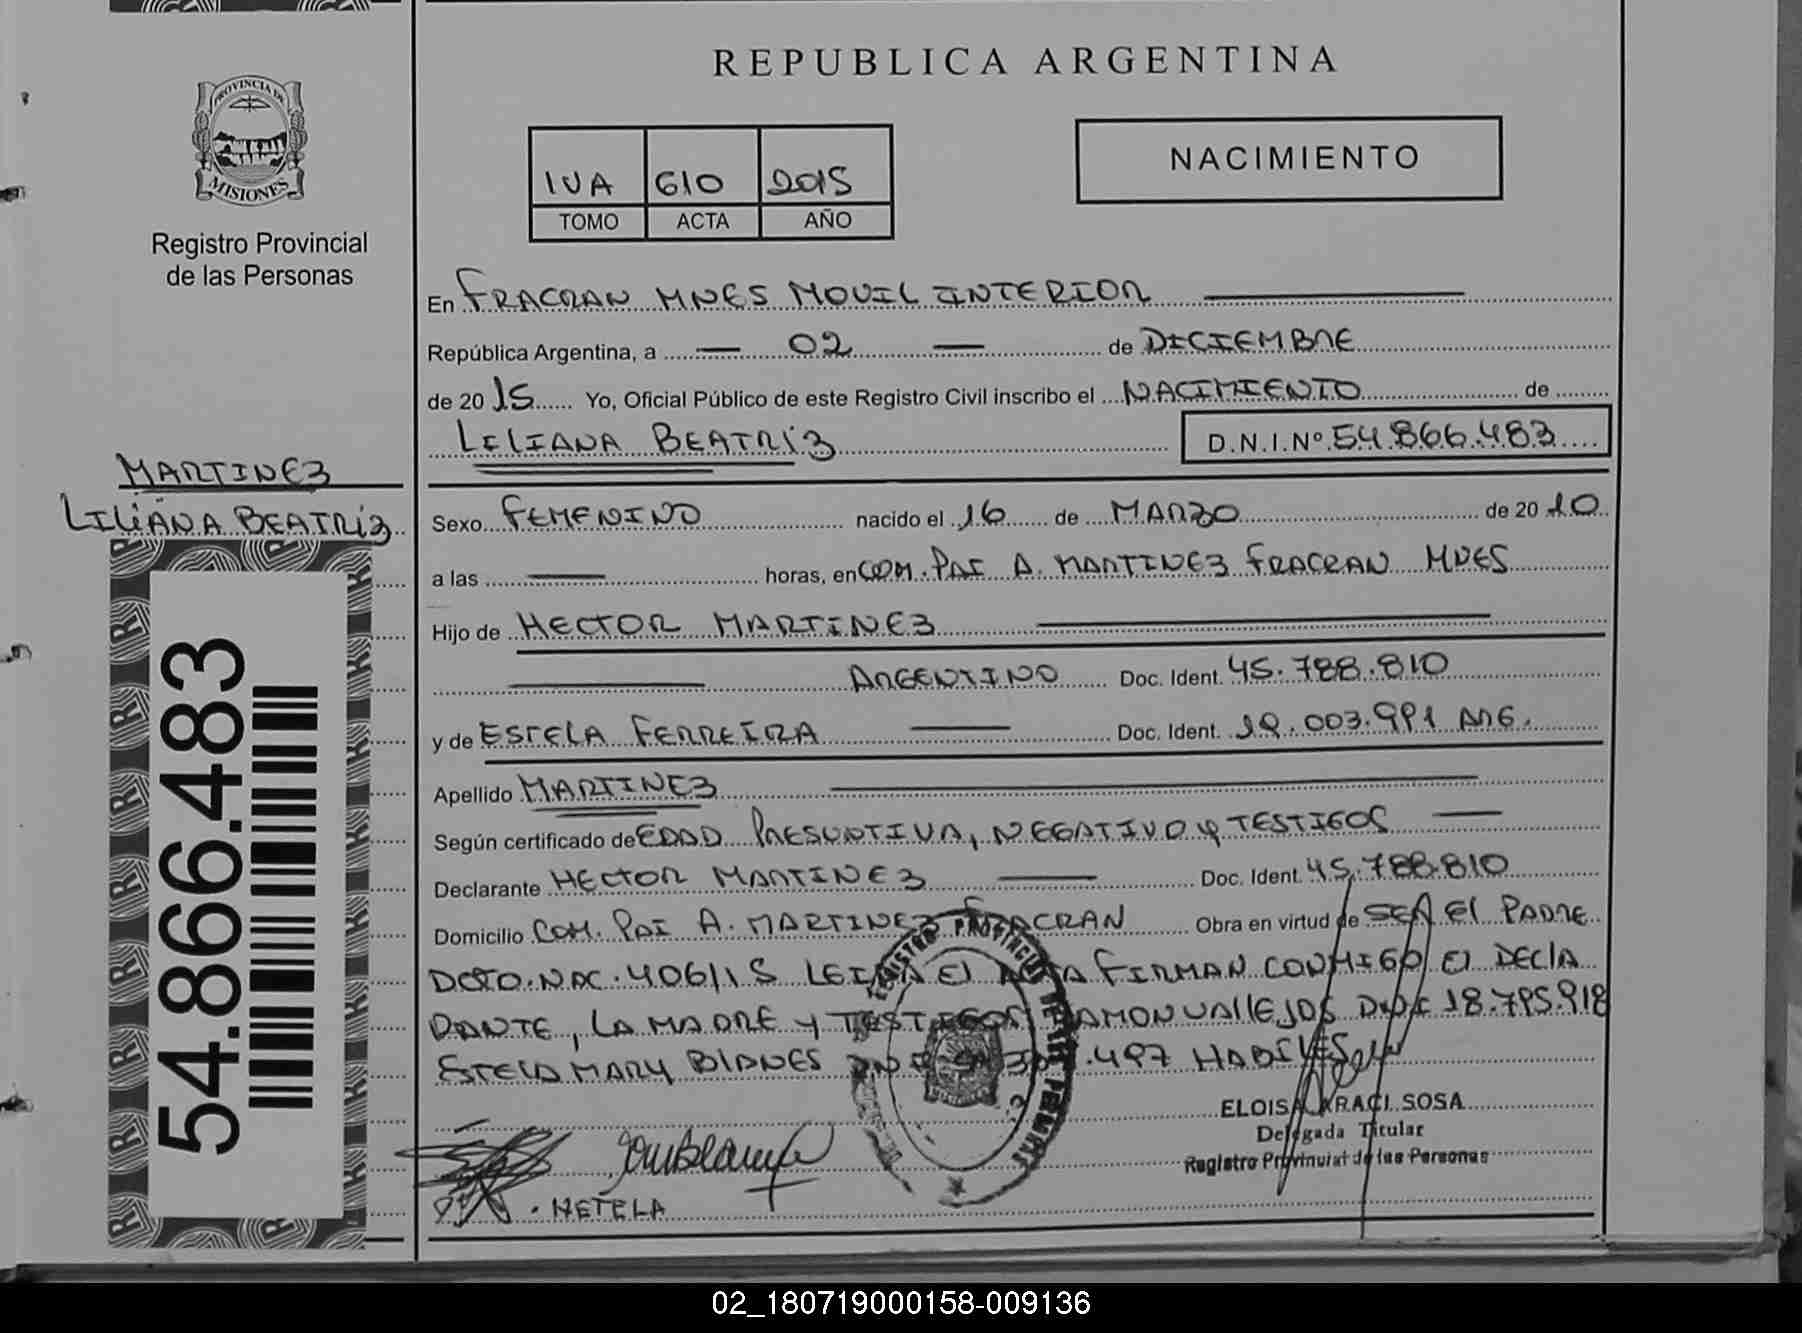 REPUBLICA ARGENTINA
PROVINCIA DE
MISIONES
Registro Provincial
de las Personas
IVA 610 2015
TOMO ACTA AÑO
NACIMIENTO
En FRACRAN MNES MOVIL INTERIOR
República Argentina, a 02 de DICIEMBRE
de 2015 Yo, Oficial Público de este Registro Civil inscribo el NACIMIENTO de
LILIANA BEATRIZ D.N.I.Nº 54.866.483
MARTINEZ
LILIANA BEATRIZ
Sexo FEMENINO nacido el 16 de MARZO de 2010
a las horas, en COM. PAI A. MARTINEZ FRACRAN MNES
Hijo de HECTOR MARTINEZ
ARGENTINO Doc. Ident. 45.788.810
y de ESTELA FERREIRA Doc. Ident. 19.003.991 ARG.
Apellido MARTINEZ
Según certificado de EDAD PRESUNTIVA, NEGATIVO y TESTIGOS
Declarante HECTOR MARTINEZ Doc. Ident. 45.788.810
Domicilio COM. PAI A. MARTINEZ FRACRAN Obra en virtud de SER El PADRE
DCTO. NAC. 406/15 LEIDA El ACTA FIRMAN CONMIGO El DEClA
RANTE, LA MADRE y TESTIGOS RAMON VAllEJOS 18.795.918
ESTElA MARY BlANES .497 HABILES
ELOISA ARACI SOSA
Delegada Titular
Registro Provincial de las Personas
HETELA
54.866.483
02_180719000158-009136